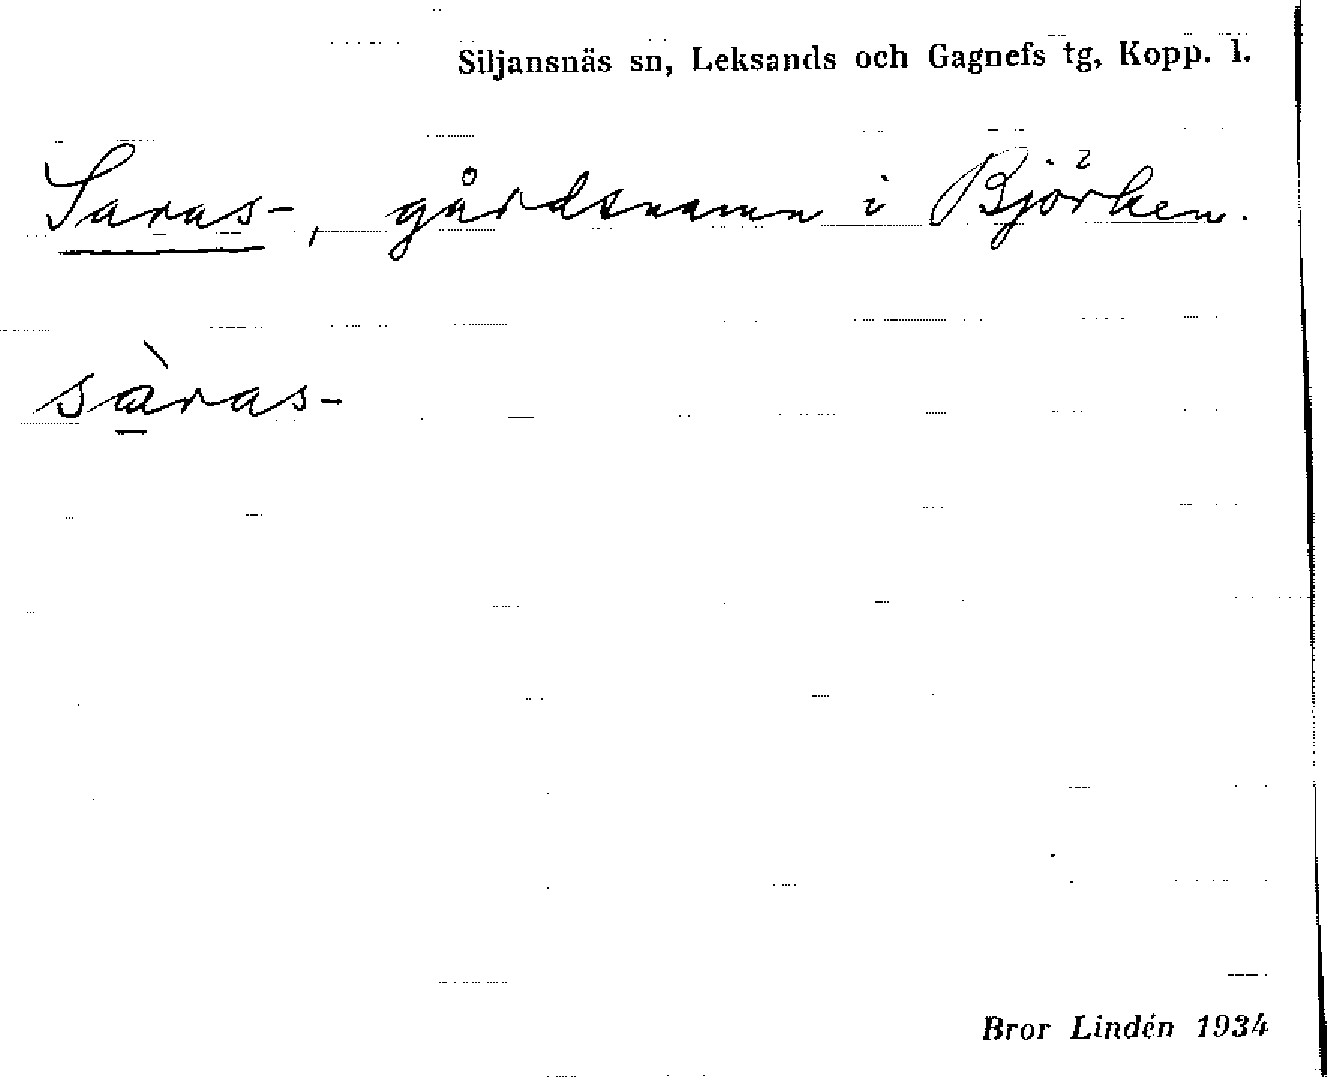 Siljansnäs sn, Leksands och Gagnefs tg, Kopp. l.
Saras-, gårdsnamn i Björken.
sàras-
Bror Lindén 1934